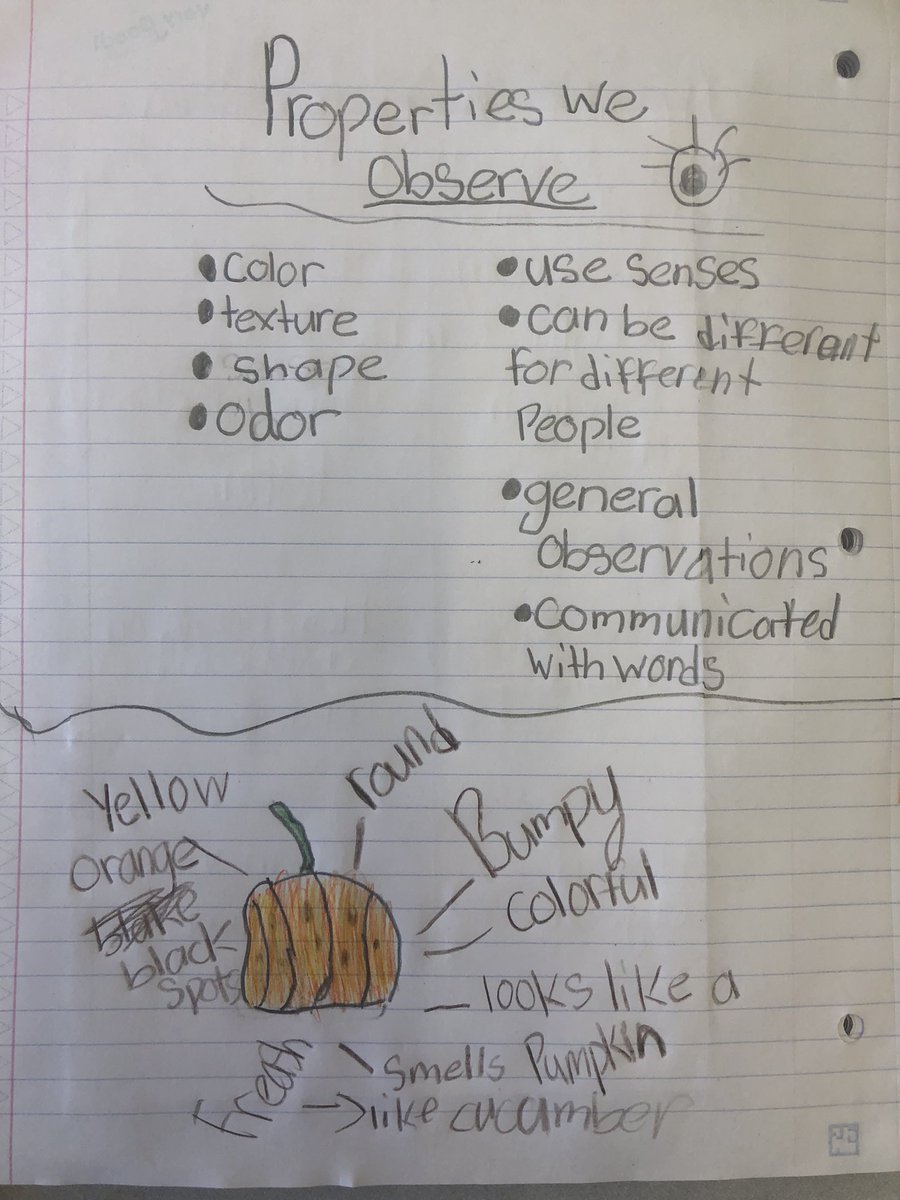 Properties we
Observe
• color
• texture
• shape
• Odor
• use senses
• can be different
for different
People
• general
Observations
• communicated
with words
Yellow
Orange
black
spots
round
Bumpy
colorful
looks like a
Pumpkin
smells
like cucumber